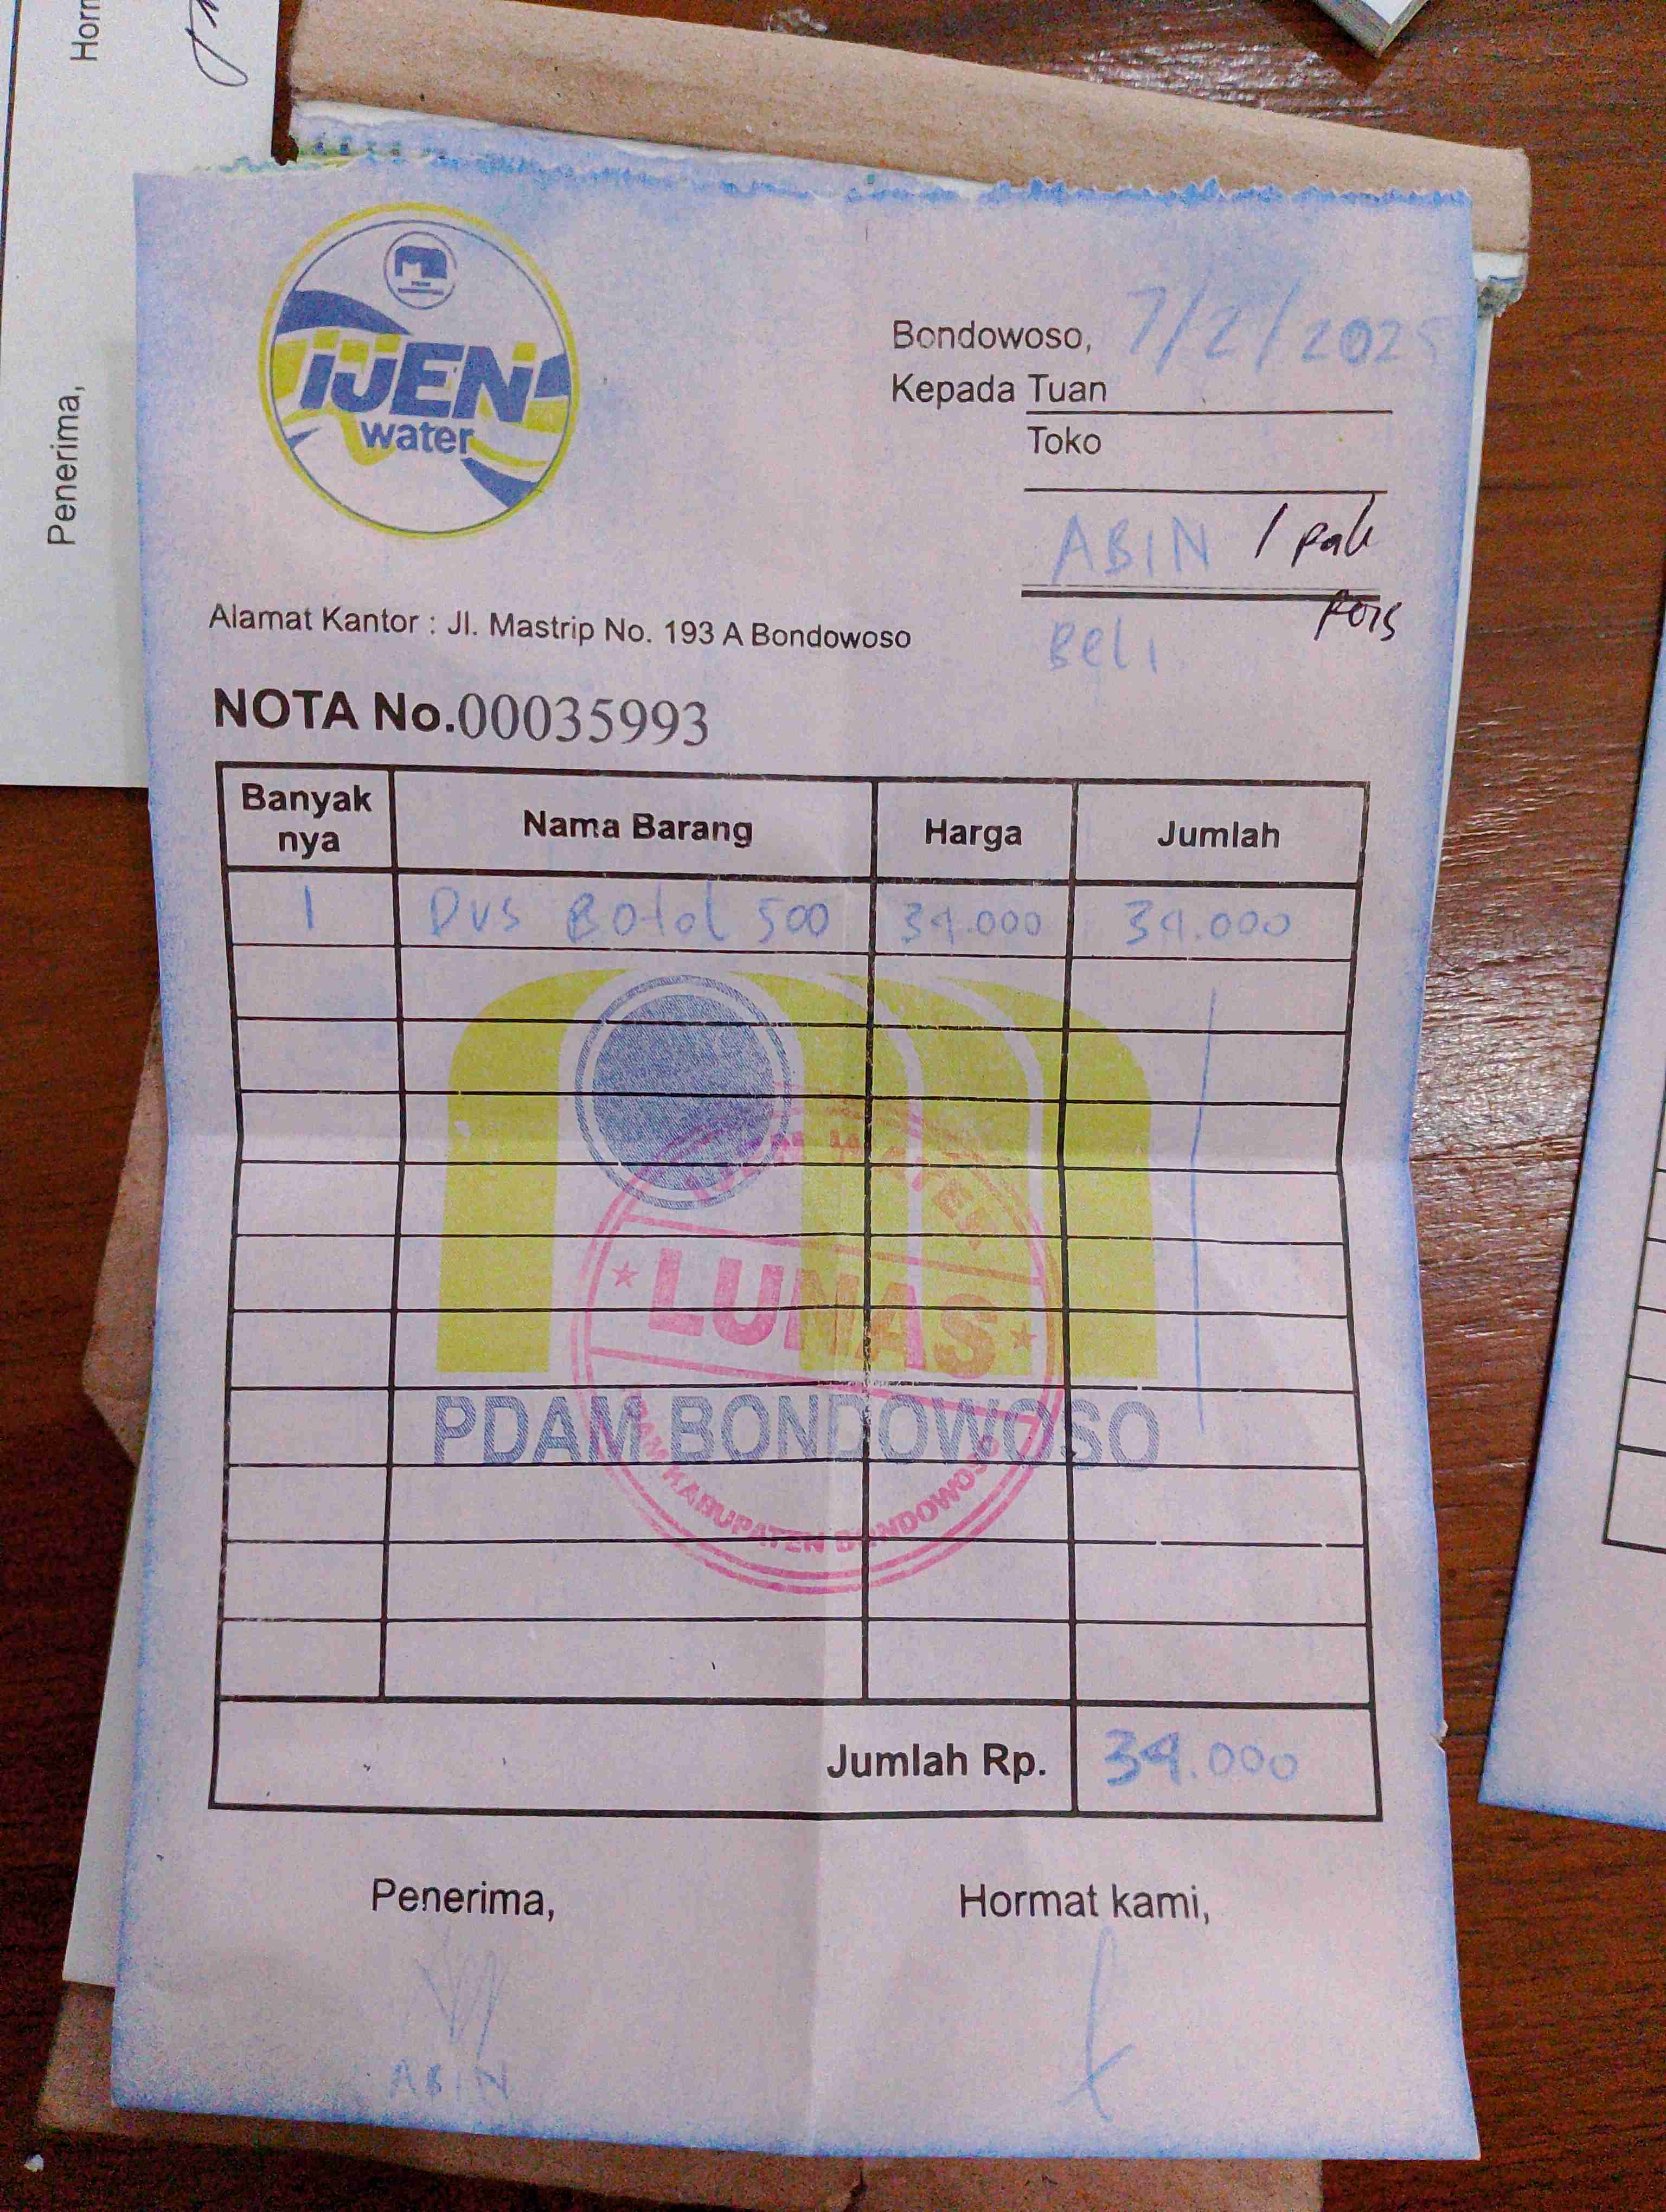 Horm
Penerima,
IJEN
water
Bondowoso, 7/2/2025
Kepada Tuan
Toko
ABIN / pak
Fois
Beli
Alamat Kantor : Jl. Mastrip No. 193 A Bondowoso
NOTA No.00035993
Banyak nya Nama Barang Harga Jumlah
1 Dus Botol 500 34.000 34.000
IJEN WATER
LUNAS
PDAM BONDOWOSO
PDAM KABUPATEN BONDOWOSO
Jumlah Rp. 34.000
Penerima, Hormat kami,
ABIN